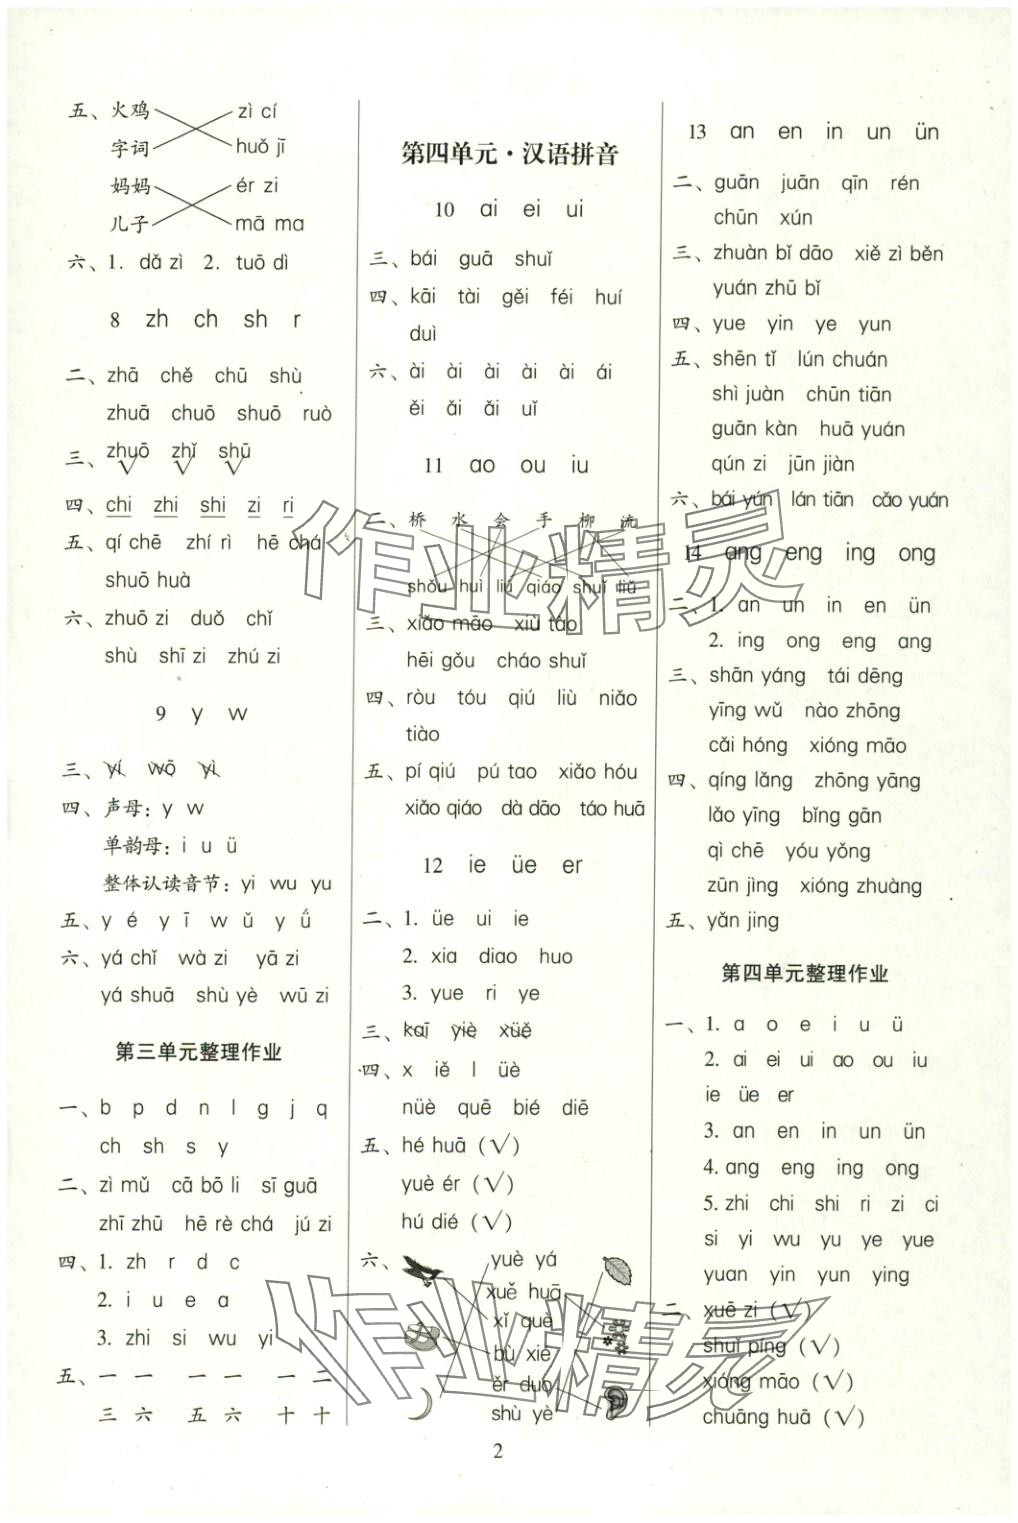 五、火鸡 zì cí
字词 huǒ jī
妈妈 ér zi
儿子 mā ma
六、1. dǎ zì 2. tuō dì
8 zh ch sh r
二、zhā chě chū shù
zhuā chuō shuō ruò
三、zhuō zhǐ shū
√ √ √
四、chi zhi shi zi ri
五、qí chē zhí rì hē chá
shuō huà
六、zhuō zi duǒ chǐ
shù shī zi zhú zi
9 y w
三、yí wō yì
四、声母：y w
单韵母：i u ü
整体认读音节：yi wu yu
五、y é y ī w ǔ y ǘ
六、yá chǐ wà zi yā zi
yá shuā shù yè wū zi
第三单元整理作业
一、b p d n l g j q
ch sh s y
二、zì mǔ cā bō li sī guā
zhī zhū hē rè chá jú zi
四、1. zh r d c
2. i u e a
3. zhi si wu yi
五、一 一 一 一 一 二
三 六 五 六 十 十
第四单元·汉语拼音
10 ai ei ui
三、bái guā shuǐ
四、kāi tài gěi féi huí
duì
六、ài ài ài ài ài ái
ěi ǎi ǎi uǐ
11 ao ou iu
二、桥 水 会 手 柳 流
shǒu huì liú qiáo shuǐ liǔ
三、xiǎo māo xiù táo
hēi gǒu cháo shuǐ
四、ròu tóu qiú liù niǎo
tiào
五、pí qiú pú tao xiǎo hóu
xiǎo qiáo dà dāo táo huā
12 ie üe er
二、1. üe ui ie
2. xia diao huo
3. yue ri ye
三、kaī yiè xüě
四、x iě l üè
nüè quē bié diē
五、hé huā (√)
yuè ér (√)
hú dié (√)
六、yuè yá
xuě huā
xǐ què
bù xié
ěr duo
shù yè
13 an en in un ün
二、guān juān qīn rén
chūn xún
三、zhuàn bǐ dāo xiě zì běn
yuán zhū bǐ
四、yue yin ye yun
五、shēn tǐ lún chuán
shì juàn chūn tiān
guān kàn huā yuán
qún zi jūn jiàn
六、bái yún lán tiān cǎo yuán
14 ang eng ing ong
二、1. an un in en ün
2. ing ong eng ang
三、shān yáng tái dēng
yīng wǔ nào zhōng
cǎi hóng xióng māo
四、qíng lǎng zhōng yāng
lǎo yīng bǐng gān
qì chē yóu yǒng
zūn jìng xióng zhuàng
五、yǎn jing
第四单元整理作业
一、1. a o e i u ü
2. ai ei ui ao ou iu
ie üe er
3. an en in un ün
4. ang eng ing ong
5. zhi chi shi ri zi ci
si yi wu yu ye yue
yuan yin yun ying
二、xuē zi (√)
shuǐ píng (√)
xióng māo (√)
chuāng huā (√)
2
作业精灵
作业精灵